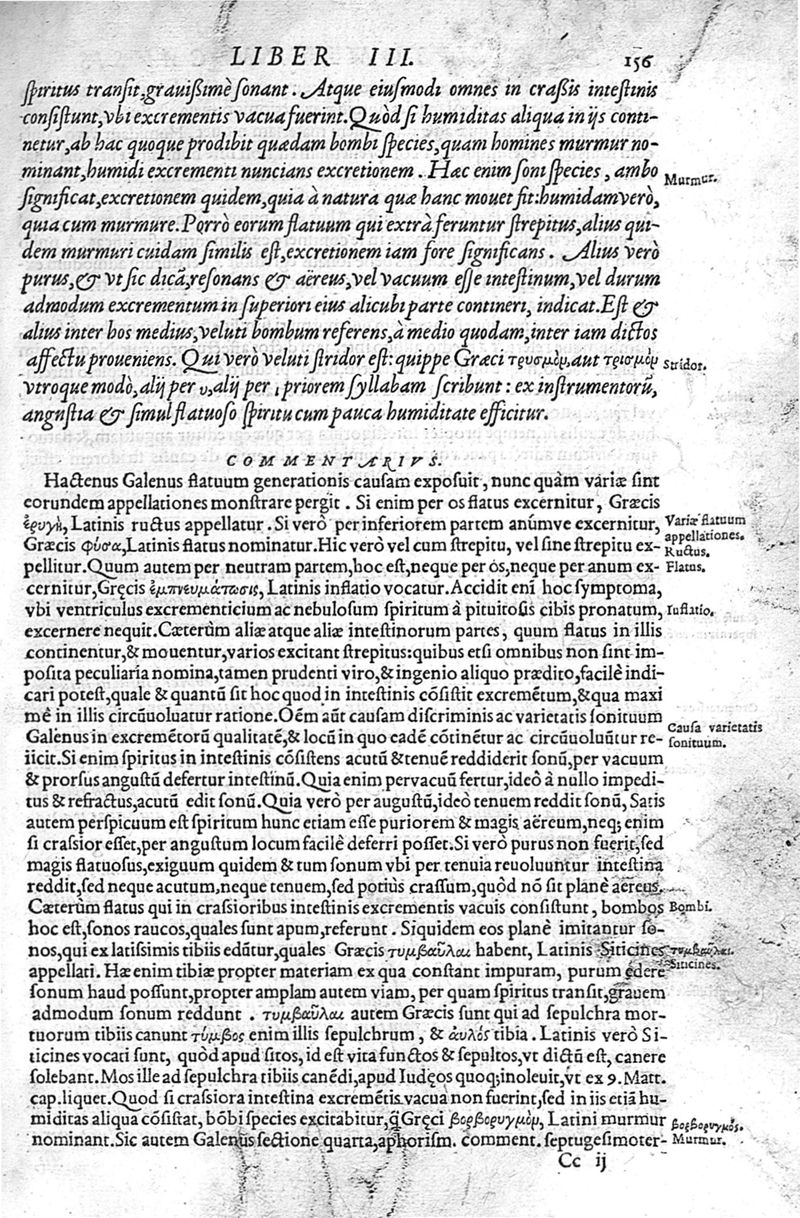 LIBER III. 156
spiritus transit, grauißimè sonant. Atque eiusmodi omnes in craßis intestinis
consistunt, vbi excrementis vacua fuerint. Quòd si humiditas aliqua in ijs conti-
netur, ab hac quoque prodibit quædam bombi species, quam homines murmur no-
minant, humidi excrementi nuncians excretionem. Hæc enim soni species, ambo
Murmur.
significat, excretionem quidem, quia à natura quæ hanc mouet fit: humidam verò,
quia cum murmure. Porrò eorum flatuum qui extrà feruntur strepitus, alius qui-
dem murmuri cuidam similis est, excretionem iam fore significans. Alius verò
purus, & vt sic dicã, resonans & aëreus, vel vacuum esse intestinum, vel durum
admodum excrementum in superiori eius alicubi parte contineri, indicat. Est &
alius inter hos medius, veluti bombum referens, à medio quodam, inter iam dictos
affectu proueniens. Qui verò veluti stridor est: quippe Græci τρυσμὸρ, aut τρισμὸρ
Stridor.
vtroque modò, alij per υ, alij per ι priorem syllabam scribunt: ex instrumentorũ,
angustia & simul flatuoso spiritu cum pauca humiditate efficitur.
COMMENTARIVS.
Hactenus Galenus flatuum generationis causam exposuit, nunc quàm variæ sint
eorundem appellationes monstrare pergit. Si enim per os flatus excernitur, Græcis
ἐρυγὴ, Latinis ructus appellatur. Si verò per inferiorem partem anúmve excernitur,
Variæ flatuum
appellationes.
Græcis φύσα, Latinis flatus nominatur. Hic verò vel cum strepitu, vel sine strepitu ex-
Ructus.
pellitur. Quum autem per neutram partem, hoc est, neque per òs, neque per anum ex-
Flatus.
cernitur, Gręcis ἐμπνευμάτωσις, Latinis inflatio vocatur. Accidit enĩ hoc symptoma,
vbi ventriculus excrementicium ac nebulosum spiritum à pituitosis cibis pronatum,
Inflatio.
excernere nequit. Cæterùm aliæ atque aliæ intestinorum partes, quum flatus in illis
continentur, & mouentur, varios excitant strepitus: quibus etsi omnibus non sint im-
posita peculiaria nomina, tamen prudenti viro, & ingenio aliquo prædito, facilè indi-
cari potest, quale & quantũ sit hoc quod in intestinis cõsistit excremẽtum, & qua maxi
mè in illis circũuoluatur ratione. Oẽm aũt causam discriminis ac varietatis sonituum
Causa varietatis
Galenus in excremẽtorũ qualitatẽ, & locũ in quo eadẽ cõtinẽtur ac circũuoluũtur re-
sonituum.
iicit. Si enim spiritus in intestinis cõsistens acutũ & tenuẽ reddiderit sonũ, per vacuum
& prorsus angustũ defertur intestinũ. Quia enim per vacuũ fertur, ideò à nullo impedi-
tus & refractus, acutũ edit sonũ. Quia verò per augustũ, ideò tenuem reddit sonũ, Satis
autem perspicuum est spiritum hunc etiam esse puriorem & magis aëreum, neq; enim
si crassior esset, per angustum locum facilè deferri posset. Si verò purus non fuerit, sed
magis flatuosus, exiguum quidem & tum sonum vbi per tenuia reuoluuntur intestina
reddit, sed neque acutum, neque tenuem, sed potiùs crassum, quòd nõ sit planè aëreus.
Cæterùm flatus qui in crassioribus intestinis excrementis vacuis consistunt, bombos
Bombi.
hoc est, sonos raucos, quales sunt apum, referunt. Siquidem eos planè imitantur so-
nos, qui ex latissimis tibiis edũtur, quales Græcis τυμβαῦλαι habent, Latinis Siticines
τυμβαῦλαι.
appellati. Hæ enim tibiæ propter materiam ex qua constant impuram, purum edere
Siticines.
sonum haud possunt, propter amplam autem viam, per quam spiritus transit, grauem
admodum sonum reddunt. τυμβαῦλαι autem Græcis sunt qui ad sepulchra mor-
tuorum tibiis canunt τύμβος enim illis sepulchrum, & ἀυλὸς tibia. Latinis verò Si-
ticines vocati sunt, quòd apud sitos, id est vita functos & sepultos, vt dictũ est, canere
solebant. Mos ille ad sepulchra tibiis canẽdi, apud Iudęos quoq; inoleuit, vt ex 9. Matt.
cap. liquet. Quod si crassiora intestina excremẽtis vacua non fuerint, sed in iis etiã hu-
miditas aliqua cõsistat, bõbi species excitabitur, q̃ Gręci βορβορυγμὸρ, Latini murmur
βορβορυγμός.
nominant. Sic autem Galenus sectione quarta, aphorism. comment. septugesimoter-
Murmur.
Cc ij